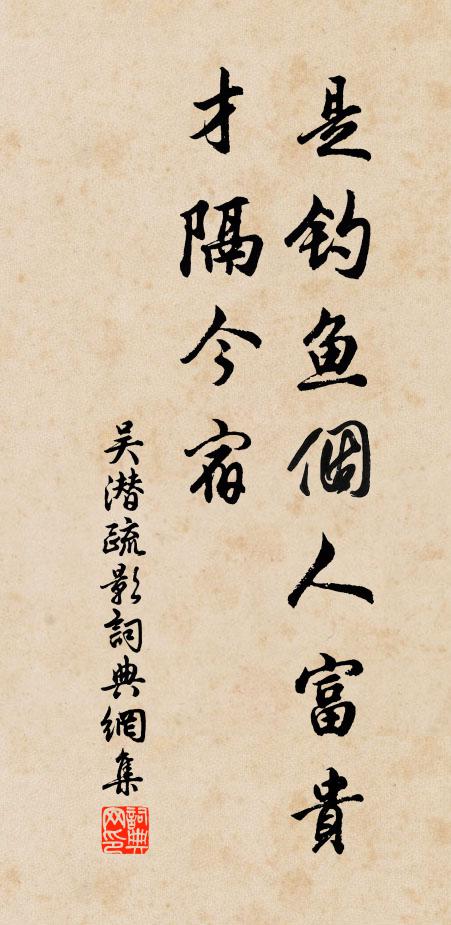 是钓鱼個人富貴
才隔今宿
吴潜疏影詞典網集
詞典网印